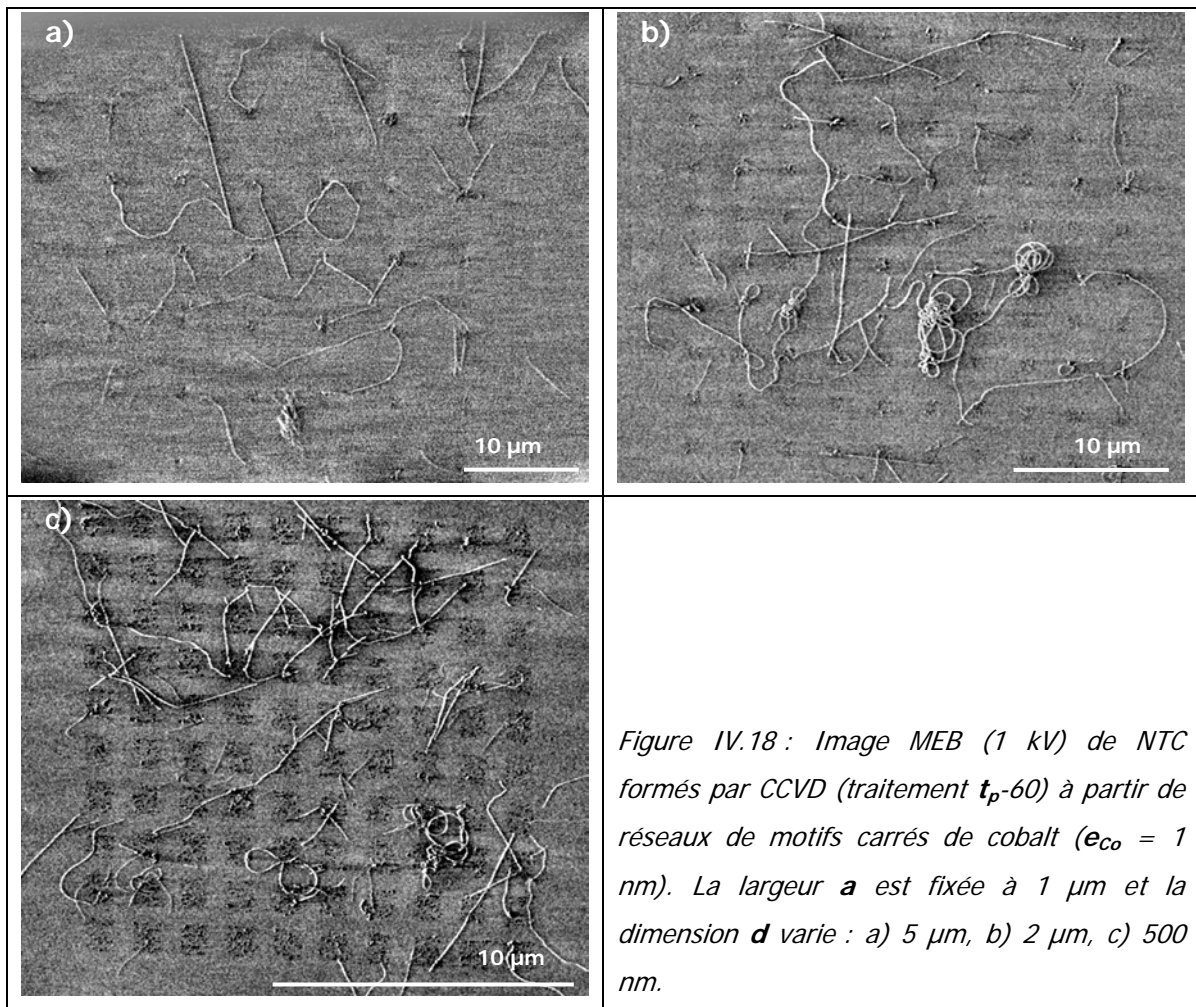 a)
10 µm
b)
10 µm
c)
10 µm
Figure IV.18 : Image MEB (1 kV) de NTC
formés par CCVD (traitement tp-60) à partir de
réseaux de motifs carrés de cobalt (eCo = 1
nm). La largeur a est fixée à 1 µm et la
dimension d varie : a) 5 µm, b) 2 µm, c) 500
nm.